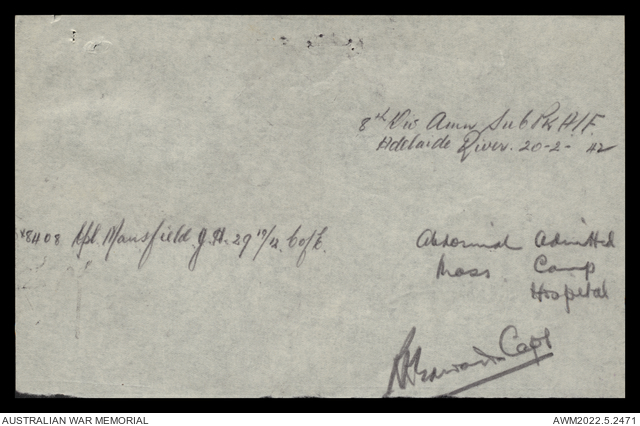 8th Div Amn Sub Pk AIF.
Adelaide River. 20-2- 42
Mansfield J.H. 29 10/12 C of E.
Abdominal Admitted
Mass. Camp
Hospital
Capt
AUSTRALIAN WAR MEMORIAL
AWM2022.5.2471